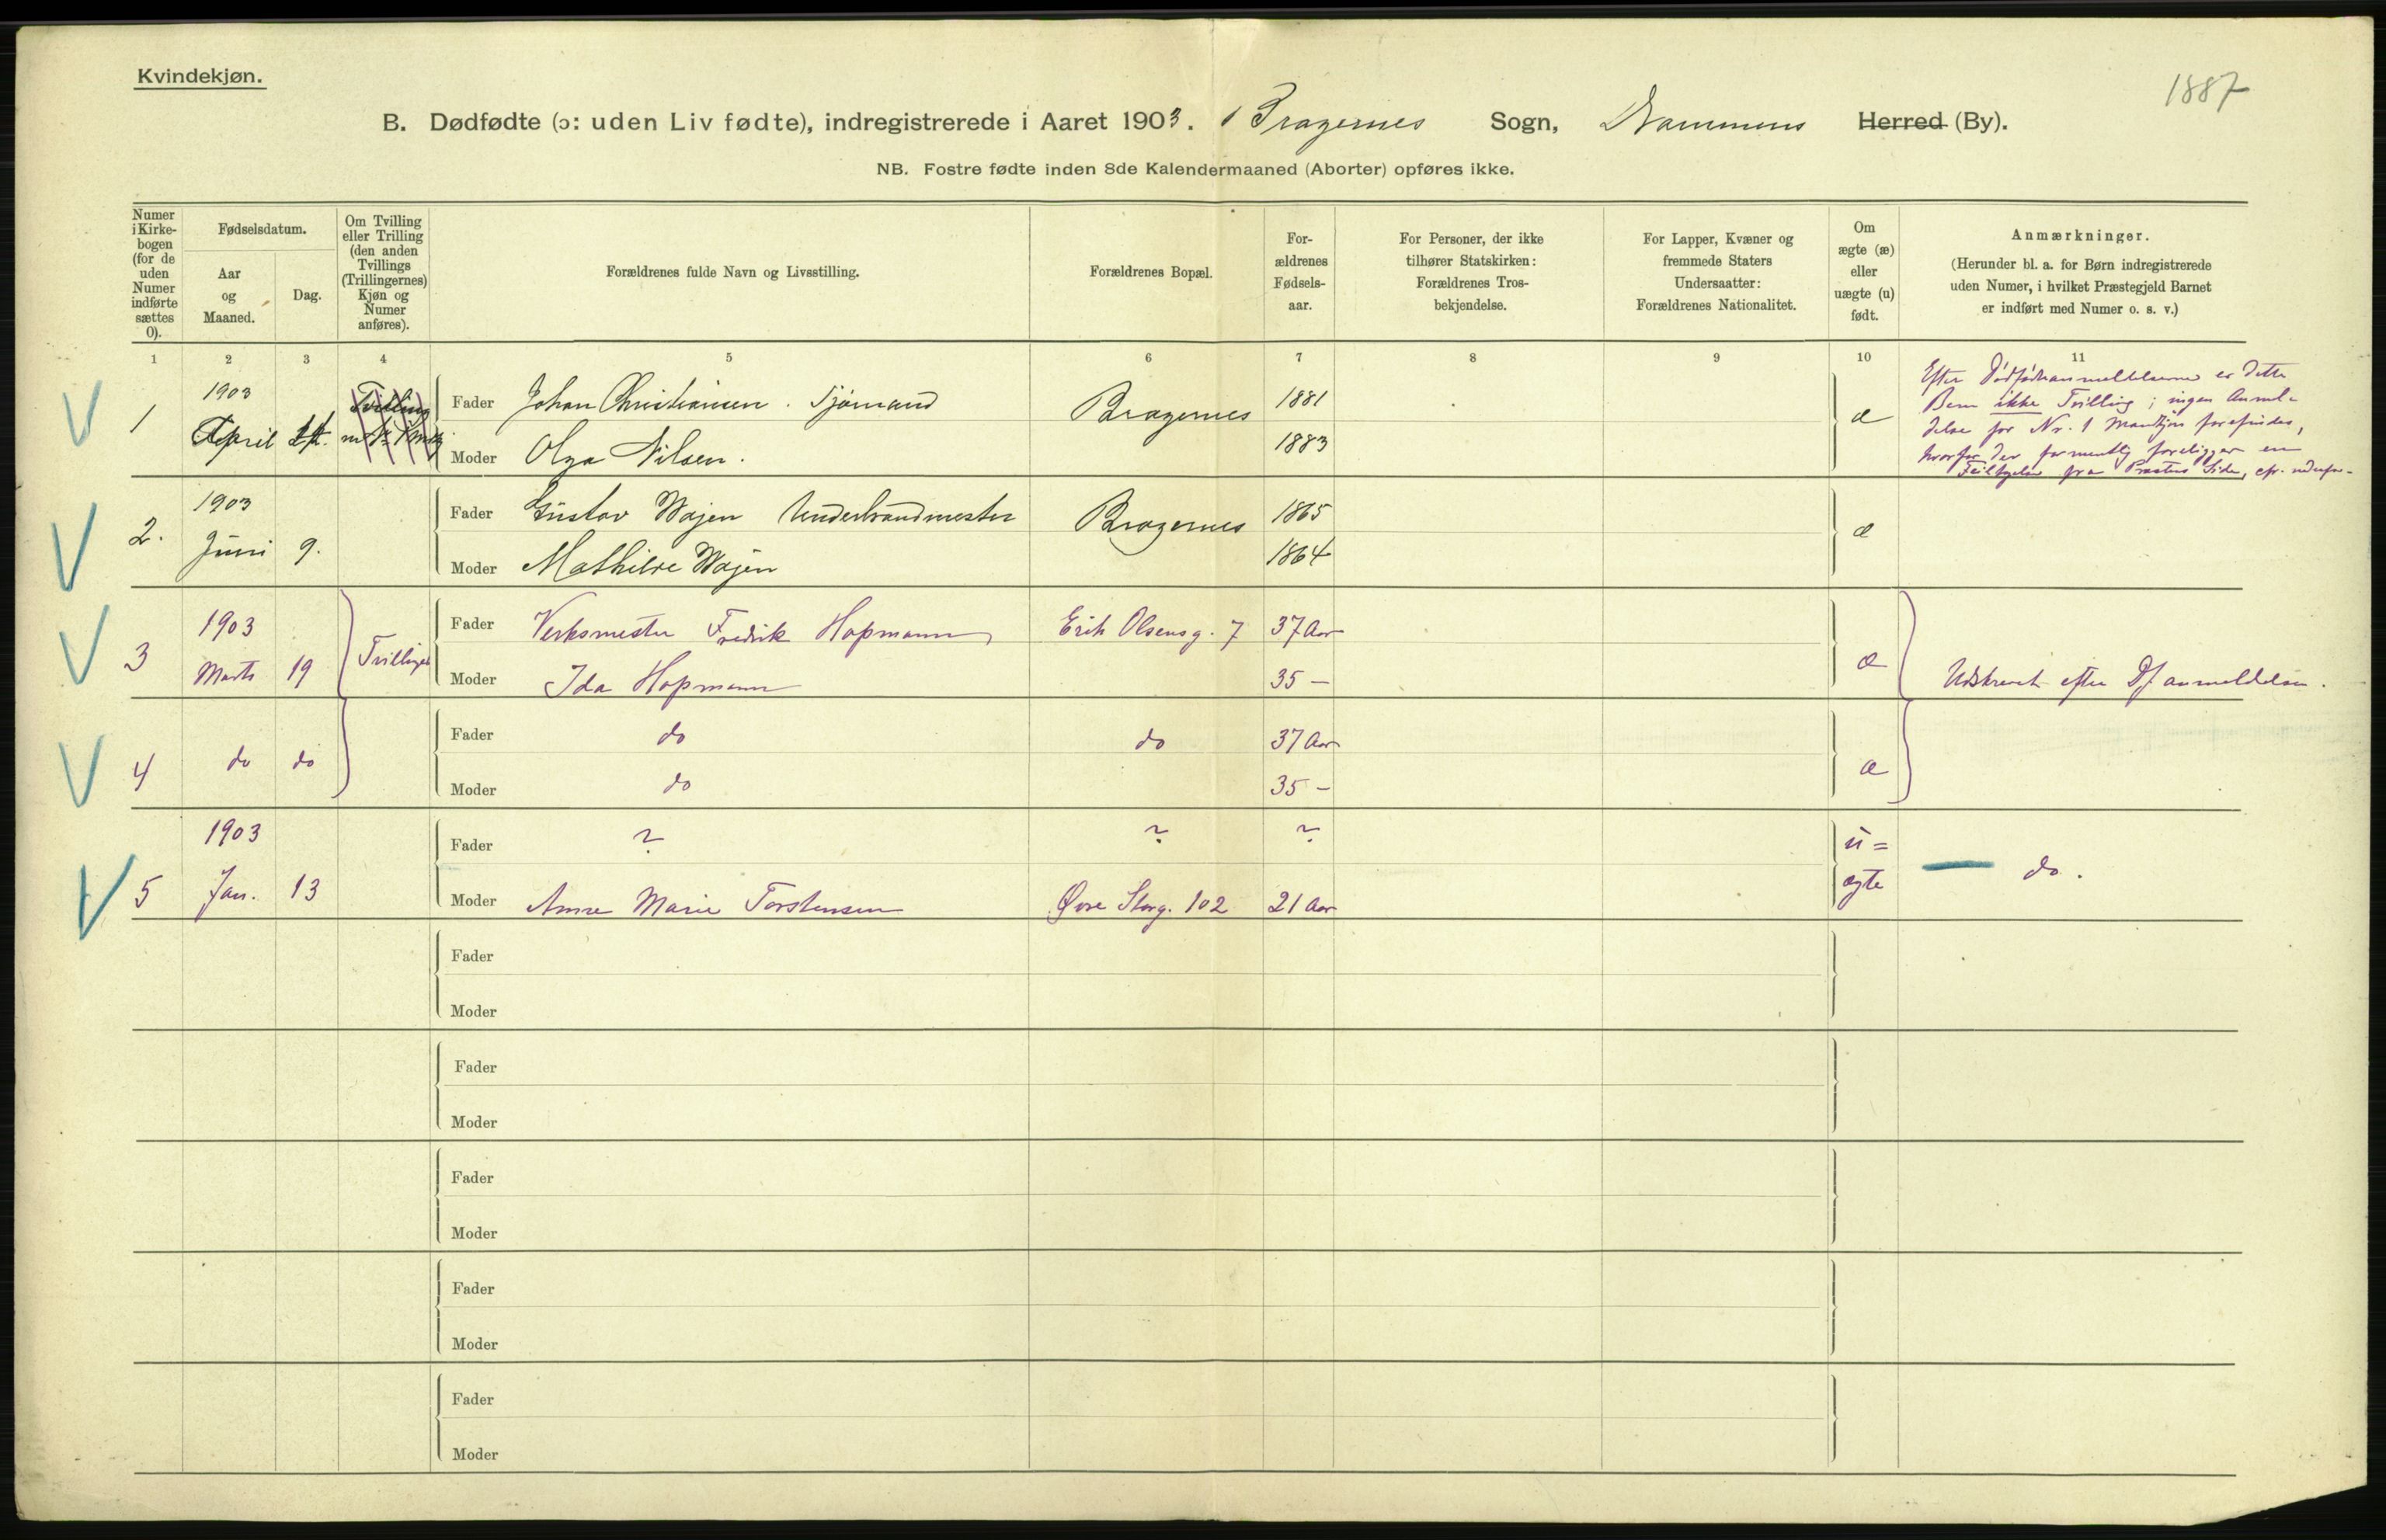 Kvindekjøn.
1887
B. Dødfødte (ɔ: uden Liv fødte), indregistrerede i Aaret 1903. Bragernes Sogn, Drammens Herred (By).
NB. Fostre fødte inden 8de Kalendermaaned (Aborter) opføres ikke.
Numer i Kirkebogen (for de uden Numer indførte sættes 0).
Fødselsdatum.
Aar og Maaned.
Dag.
Om Tvilling eller Trilling (den anden Tvillings (Trillingernes) Kjøn og Numer anføres).
Forældrenes fulde Navn og Livsstilling.
Forældrenes Bopæl.
For-ældrenes Fødsels-aar.
For Personer, der ikke tilhører Statskirken: Forældrenes Tros-bekjendelse.
For Lapper, Kvæner og fremmede Staters Undersaatter: Forældrenes Nationalitet.
Om ægte (æ) eller uægte (u) født.
Anmærkninger.
(Herunder bl. a. for Børn indregistrerede uden Numer, i hvilket Præstegjeld Barnet er indført med Numer o. s. v.)
1 2 3 4 5 6 7 8 9 10 11
1903 Tvilling Fader Johan Christiansen. Sjømand Bragernes 1881
1 April Moder Olga Nilsen. 1883 æ
Efter Dødfødtanmeldelserne er dette
Barn ikke Tvilling; ingen Anmel-
delse for Nr. 1 Mandkjøn forefindes,
hvorfor der formentlig foreligger en
Feiltagelse fra Præstens Side, cfr.
1903 Fader Gustav Wojen Underbrandmester Bragernes 1865
2. Juni 9. Moder Mathilde Wojen 1864 æ
1903 Fader Verksmester Fredrik Hopmann Erik Olsensg. 7 37 Aar
3 Marts 19 Tvillinger Moder Ida Hopmann 35 — æ Udskrevet efter Df anmeldelsen.
Fader do do 37 Aar
4 do do Moder do 35 — æ
1903 Fader ? ? ? u=
5 Jan. 13 Moder Anne Marie Torstensen Øvre Storg. 102 21 Aar ægte — do.
Fader
Moder
Fader
Moder
Fader
Moder
Fader
Moder
Fader
Moder